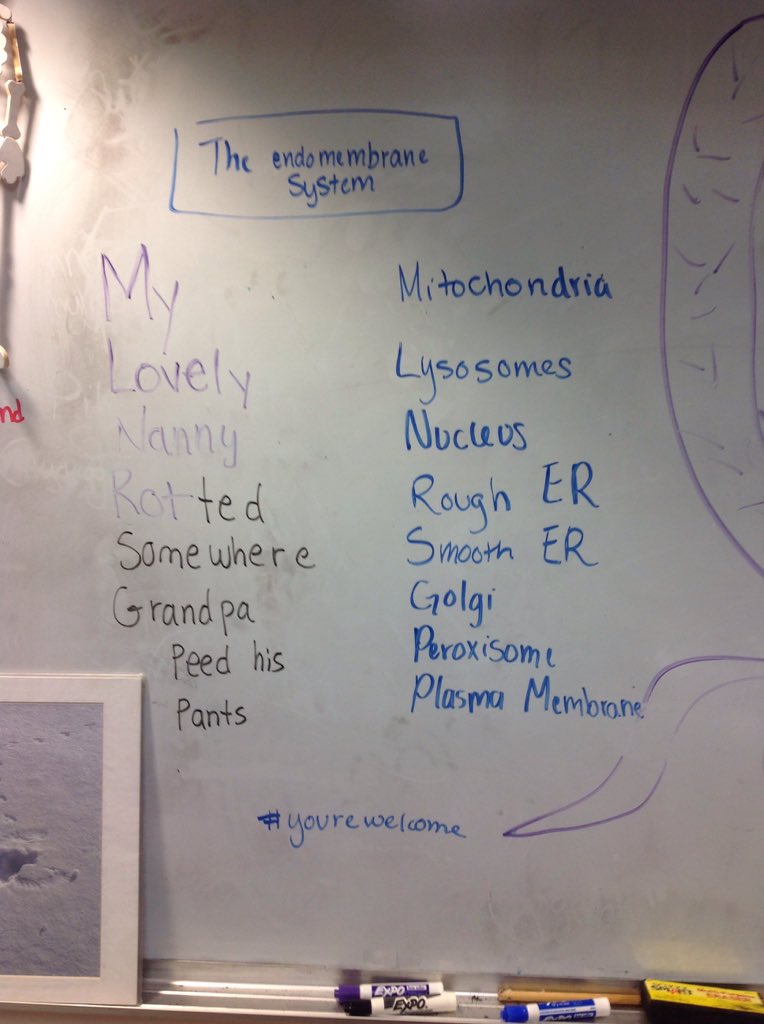 The endomembrane
system
My Mitochondria
Lovely Lysosomes
Nanny Nucleus
Rotted Rough ER
Somewhere Smooth ER
Grandpa Golgi
Peed his Peroxisome
Pants Plasma Membrane
nd
#yourewelcome
EXPO
EXPO
EXPO